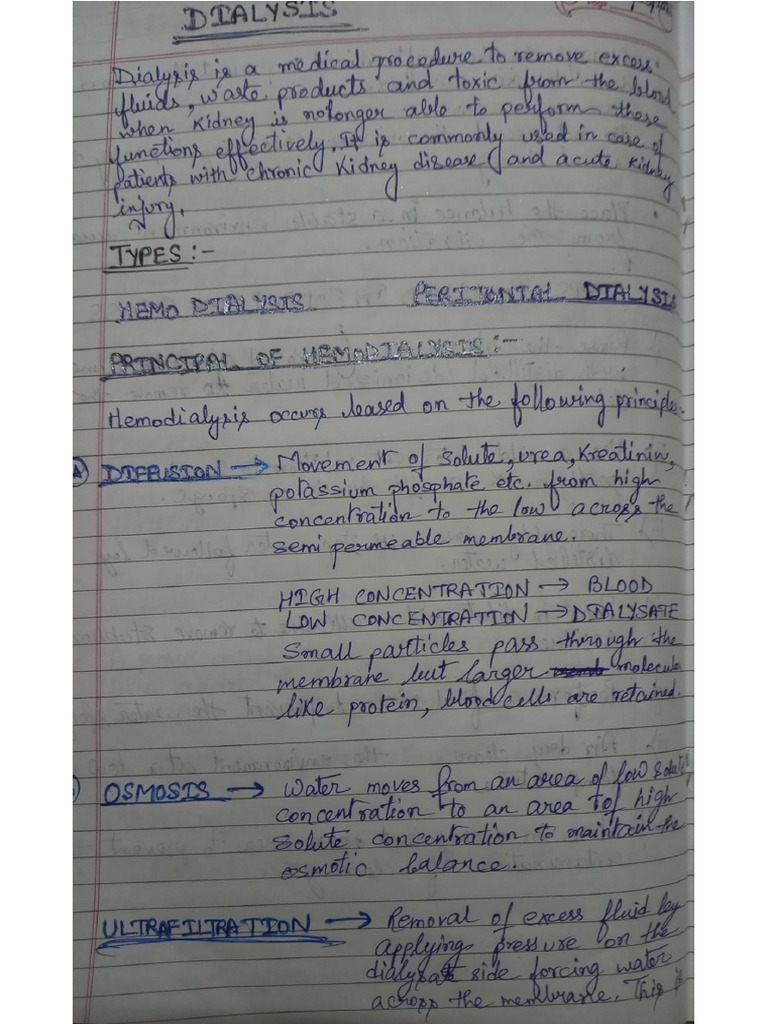 DIALYSIS
Dialysis is a medical procedure to remove excess
fluids, waste products and toxic from the blood
when kidney is nolonger able to perform these
functions effectively. It is commonly used in case of
patients with chronic kidney disease and acute kidney
injury.
TYPES :-
HEMO DIALYSIS PERITONIAL DIALYSIS
PRINCIPAL OF HEMODIALYSIS :-
Hemodialysis occurs based on the following principles.
A) DIFFUSION → Movement of solute, urea, Kreatinin,
potassium phosphate etc. from high
concentration to the low across the
semi permeable membrane.
HIGH CONCENTRATION → BLOOD
LOW CONCENTRATION → DIALYSATE
Small particles pass through the
membrane but larger molecule
like protein, blood cells are retained.
OSMOSIS → Water moves from an area of low solute
concentration to an area of high
solute concentration to maintain the
osmotic balance.
ULTRAFILTRATION → Removal of excess fluid by
applying pressure on the
side forcing water
across the membrane. This is